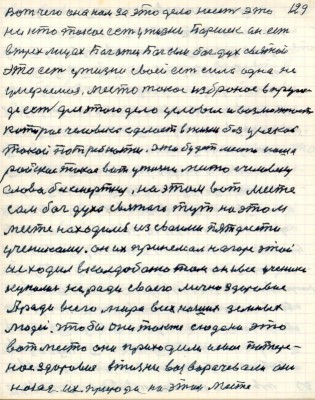 Вот чего она нам за это дело несет это 129
ни кто такое есть у жизни Паршек он ест
в трех лицах Бог отец Бог сын бог дух святой
Это ест у жизни своей ест сила одна не
умераемоя, место такое избраное в природе
ест для этого дело условие и возможность
которое человека сделает в жизни без
такой потребности. Это будет место наша
райское такое вот у жизни место человеку
слова безсмертие, на этом вот месте
сам бог духа святаго тут на этом
месте находился из своими
учениками. он их принемал на горе этой
и сходил в колдобано там он свое ученики
купался не ради своего лично здоровие
А ради всего мира всех наших земных
людей. чтобы они также сюда на это
вот место они приходили и свое потеряное
здоровие в жизни возворачевали
их природа на этим месте